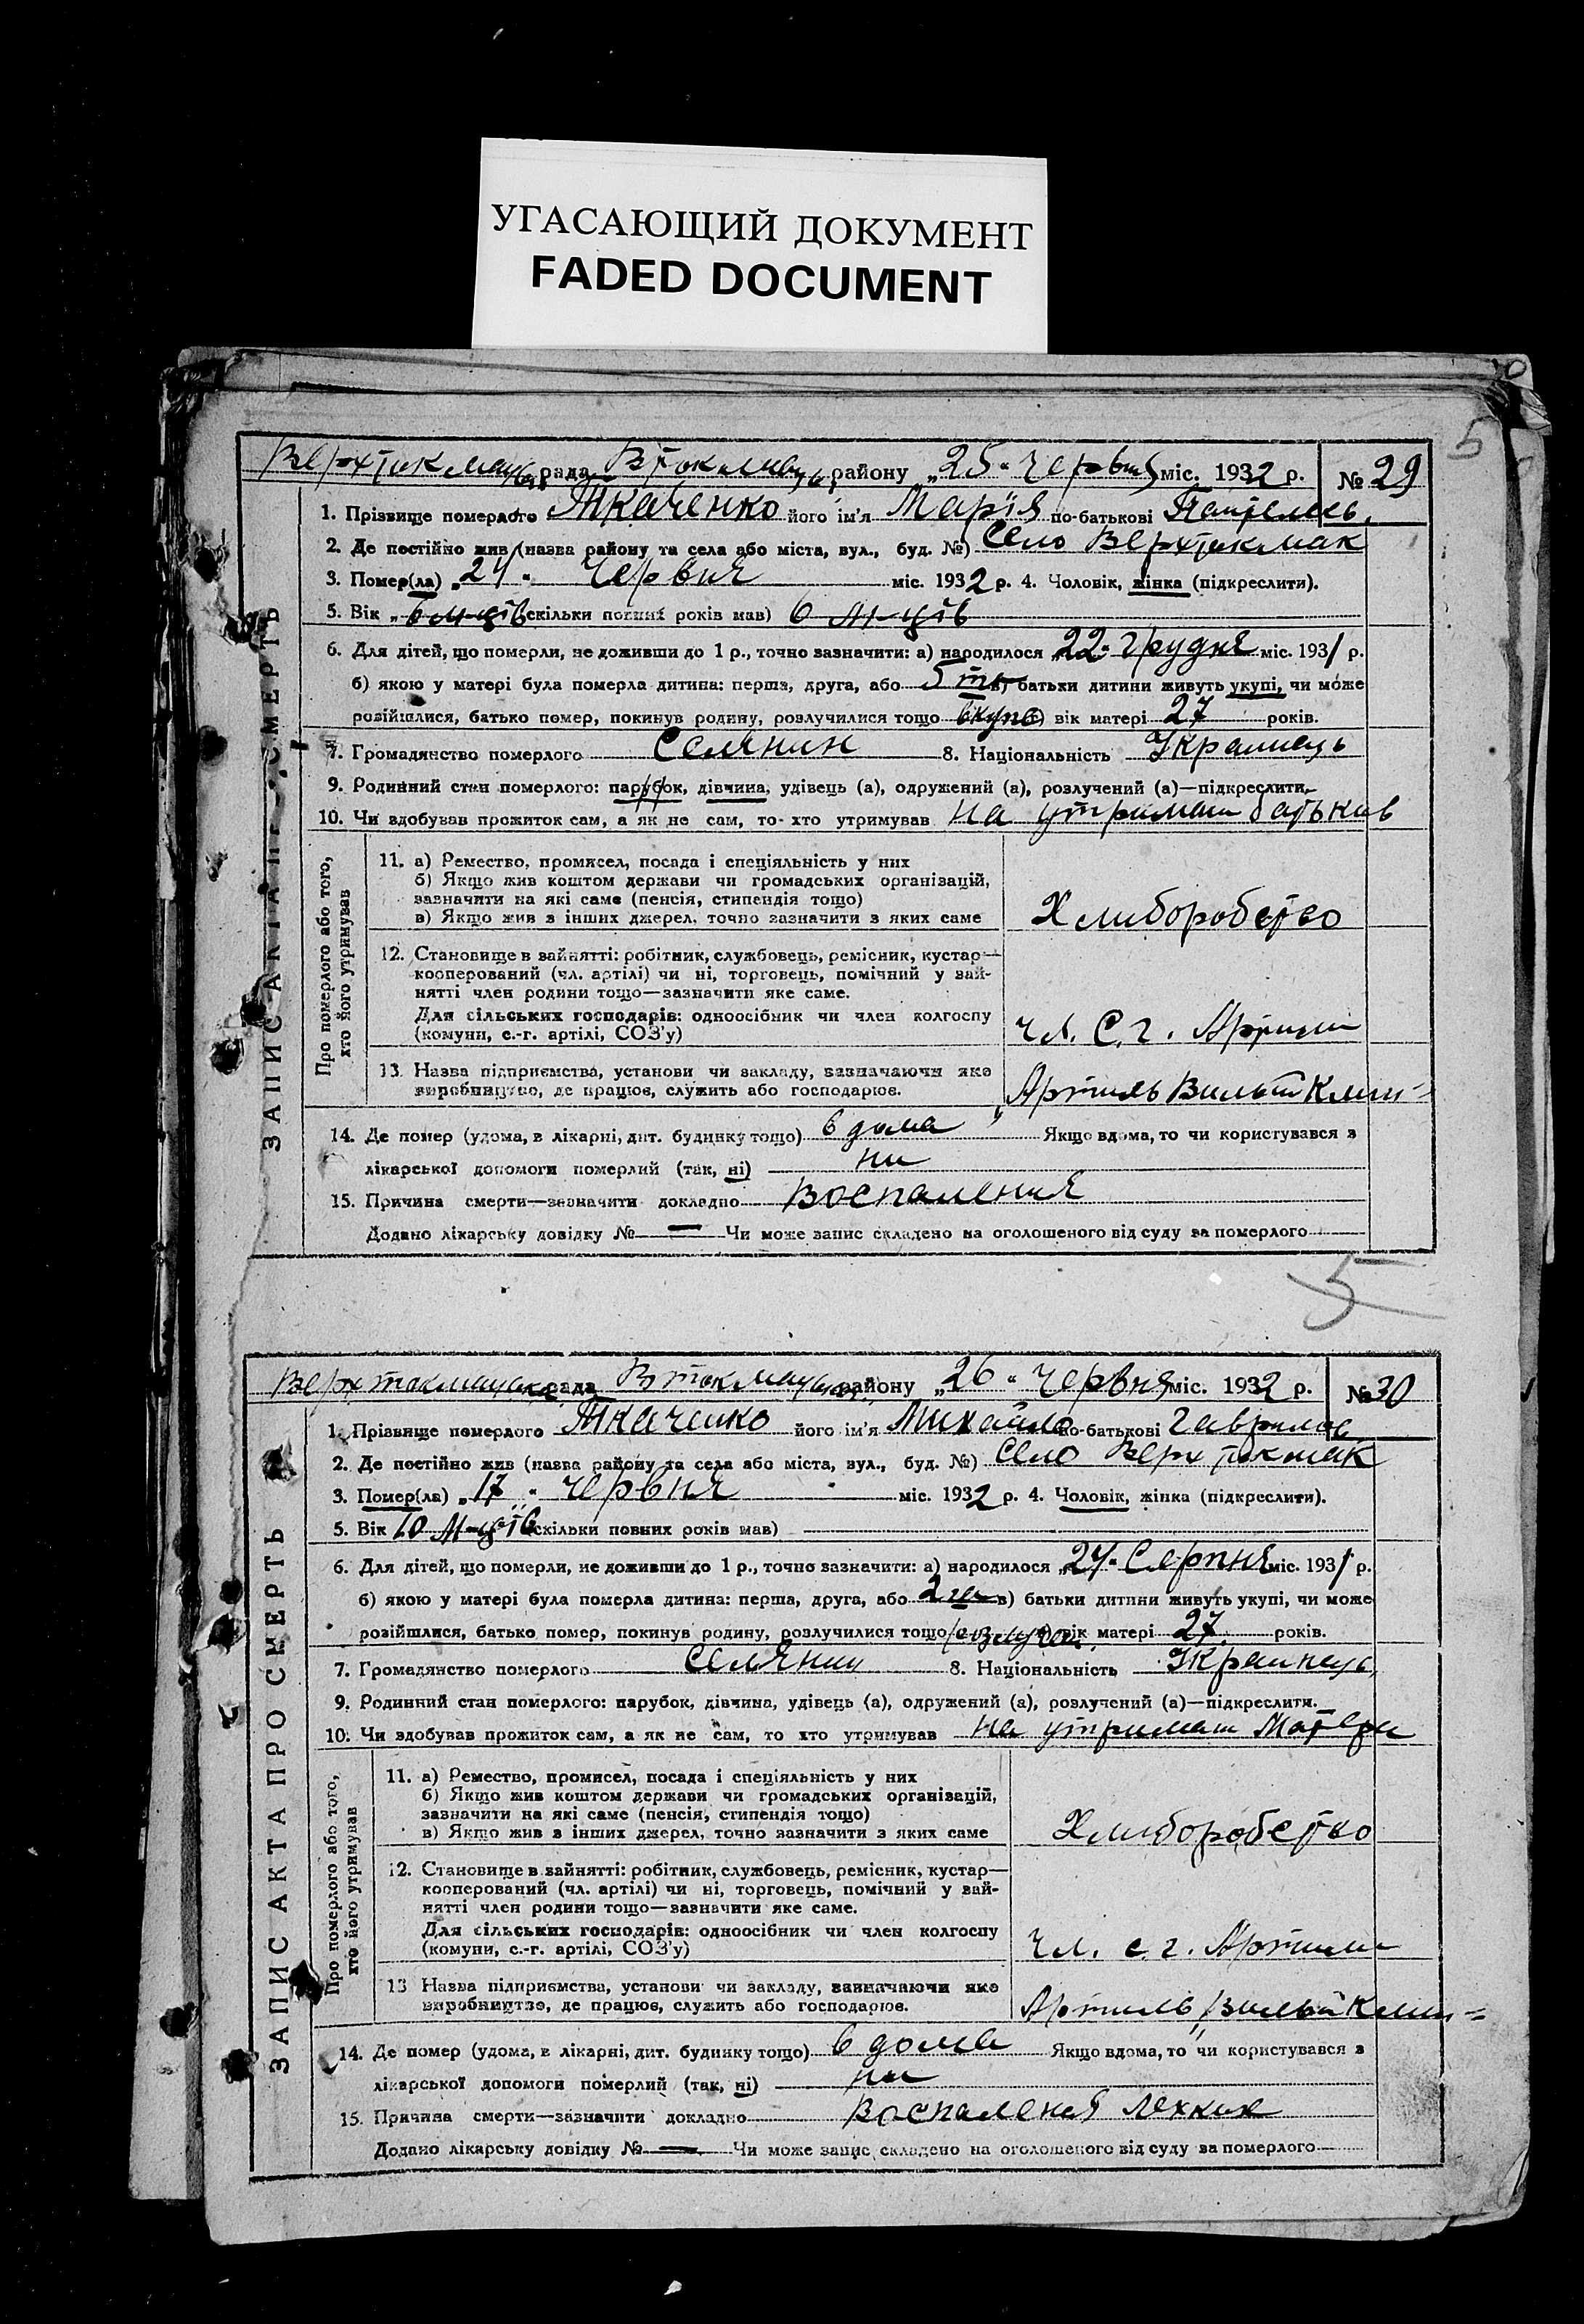 УГАСАЮЩИЙ ДОКУМЕНТ
FADED DOCUMENT
5
рада району „25“ червня міс. 1932 р. № 29
1. Прізвище померлого Ткаченко його ім'я Марія по-батькові
2. Де постійно жив (назва району та села або міста, вул., буд. №) Село Верхтокмак
3. Помер(ла) „24“ Червня міс. 1932 р. 4. Чоловік, жінка (підкреслити).
5. Вік „6 м-ців (скільки повних років мав) 6 м-ців
6. Для дітей, що померли, не доживши до 1 р., точно зазначити: а) народилося „22“ грудня міс. 1931 р.
б) якою у матері була померла дитина: перша, друга, або 5 та в) батьки дитини живуть укупі, чи може
розійшлися, батько помер, покинув родину, розлучилися тощо вкупе г) вік матері 27 років.
7. Громадянство померлого Селянин 8. Національність Украинець
9. Родинний стан померлого: парубок, дівчина, удівець (а), одружений (а), розлучений (а)—підкреслити.
10. Чи здобував прожиток сам, а як не сам, то хто утримував на утримани батькив
ЗАПИС АКТА ПРО СМЕРТЬ
Про померлого або того,
хто його утримував
11. а) Ремество, промисел, посада і спеціяльність у них
б) Якщо жив коштом держави чи громадських організацій,
зазначити на які саме (пенсія, стипендія тощо)
в) Якщо жив з інших джерел, точно зазначити з яких саме
Хлиборобство
12. Становище в зайнятті: робітник, службовець, ремісник, кустар—
кооперований (чл. артілі) чи ні, торговець, помічний у зай-
нятті член родини тощо—зазначити яке саме.
Для сільських господарів: одноосібник чи член колгоспу
(комуни, с.-г. артілі, СОЗ'у)
чл. С. г. Артили
13. Назва підприємства, установи чи закладу, зазначаючи яке
виробництво, де працює, служить або господарює.
Артиль
14. Де помер (удома, в лікарні, дит. будинку тощо) в дома Якщо вдома, то чи користувався з
лікарської допомоги померлий (так, ні) ни
15. Причина смерти—зазначити докладно Воспаления
Додано лікарську довідку № — Чи може запис складено на оголошеного від суду за померлого
5
рада району „26“ червня міс. 1932 р. № 30
1. Прізвище померлого Ткаченко його ім'я Михайло по-батькові Гаврилов
2. Де постійно жив (назва району та села або міста, вул., буд. №) Село Верхтокмак
3. Помер(ла) „17“ червня міс. 1932 р. 4. Чоловік, жінка (підкреслити).
5. Вік 10 м-ців (скільки повних років мав)
6. Для дітей, що померли, не доживши до 1 р., точно зазначити: а) народилося „24“ Серпня міс. 1931 р.
б) якою у матері була померла дитина: перша, друга, або в) батьки дитини живуть укупі, чи може
розійшлися, батько помер, покинув родину, розлучилися тощо г) вік матері 27 років.
7. Громадянство померлого Селянин 8. Національність Украинець
9. Родинний стан померлого: парубок, дівчина, удівець (а), одружений (а), розлучений (а)—підкреслити.
10. Чи здобував прожиток сам, а як не сам, то хто утримував на утримани Матери
ЗАПИС АКТА ПРО СМЕРТЬ
Про померлого або того,
хто його утримував
11. а) Ремество, промисел, посада і спеціяльність у них
б) Якщо жив коштом держави чи громадських організацій,
зазначити на які саме (пенсія, стипендія тощо)
в) Якщо жив з інших джерел, точно зазначити з яких саме
Хлиборобство
12. Становище в зайнятті: робітник, службовець, ремісник, кустар—
кооперований (чл. артілі) чи ні, торговець, помічний у зай-
нятті член родини тощо—зазначити яке саме.
Для сільських господарів: одноосібник чи член колгоспу
(комуни, с.-г. артілі, СОЗ'у)
Чл. с. г. Артили
13 Назва підприємства, установи чи закладу, зазначаючи яке
виробництво, де працює, служить або господарює.
Артиль
14. Де помер (удома, в лікарні, дит. будинку тощо) в дома Якщо вдома, то чи користувався з
лікарської допомоги померлий (так, ні) ни
15. Причина смерти—зазначити докладно Воспаления лехких
Додано лікарську довідку № — Чи може запис складено на оголошеного від суду за померлого